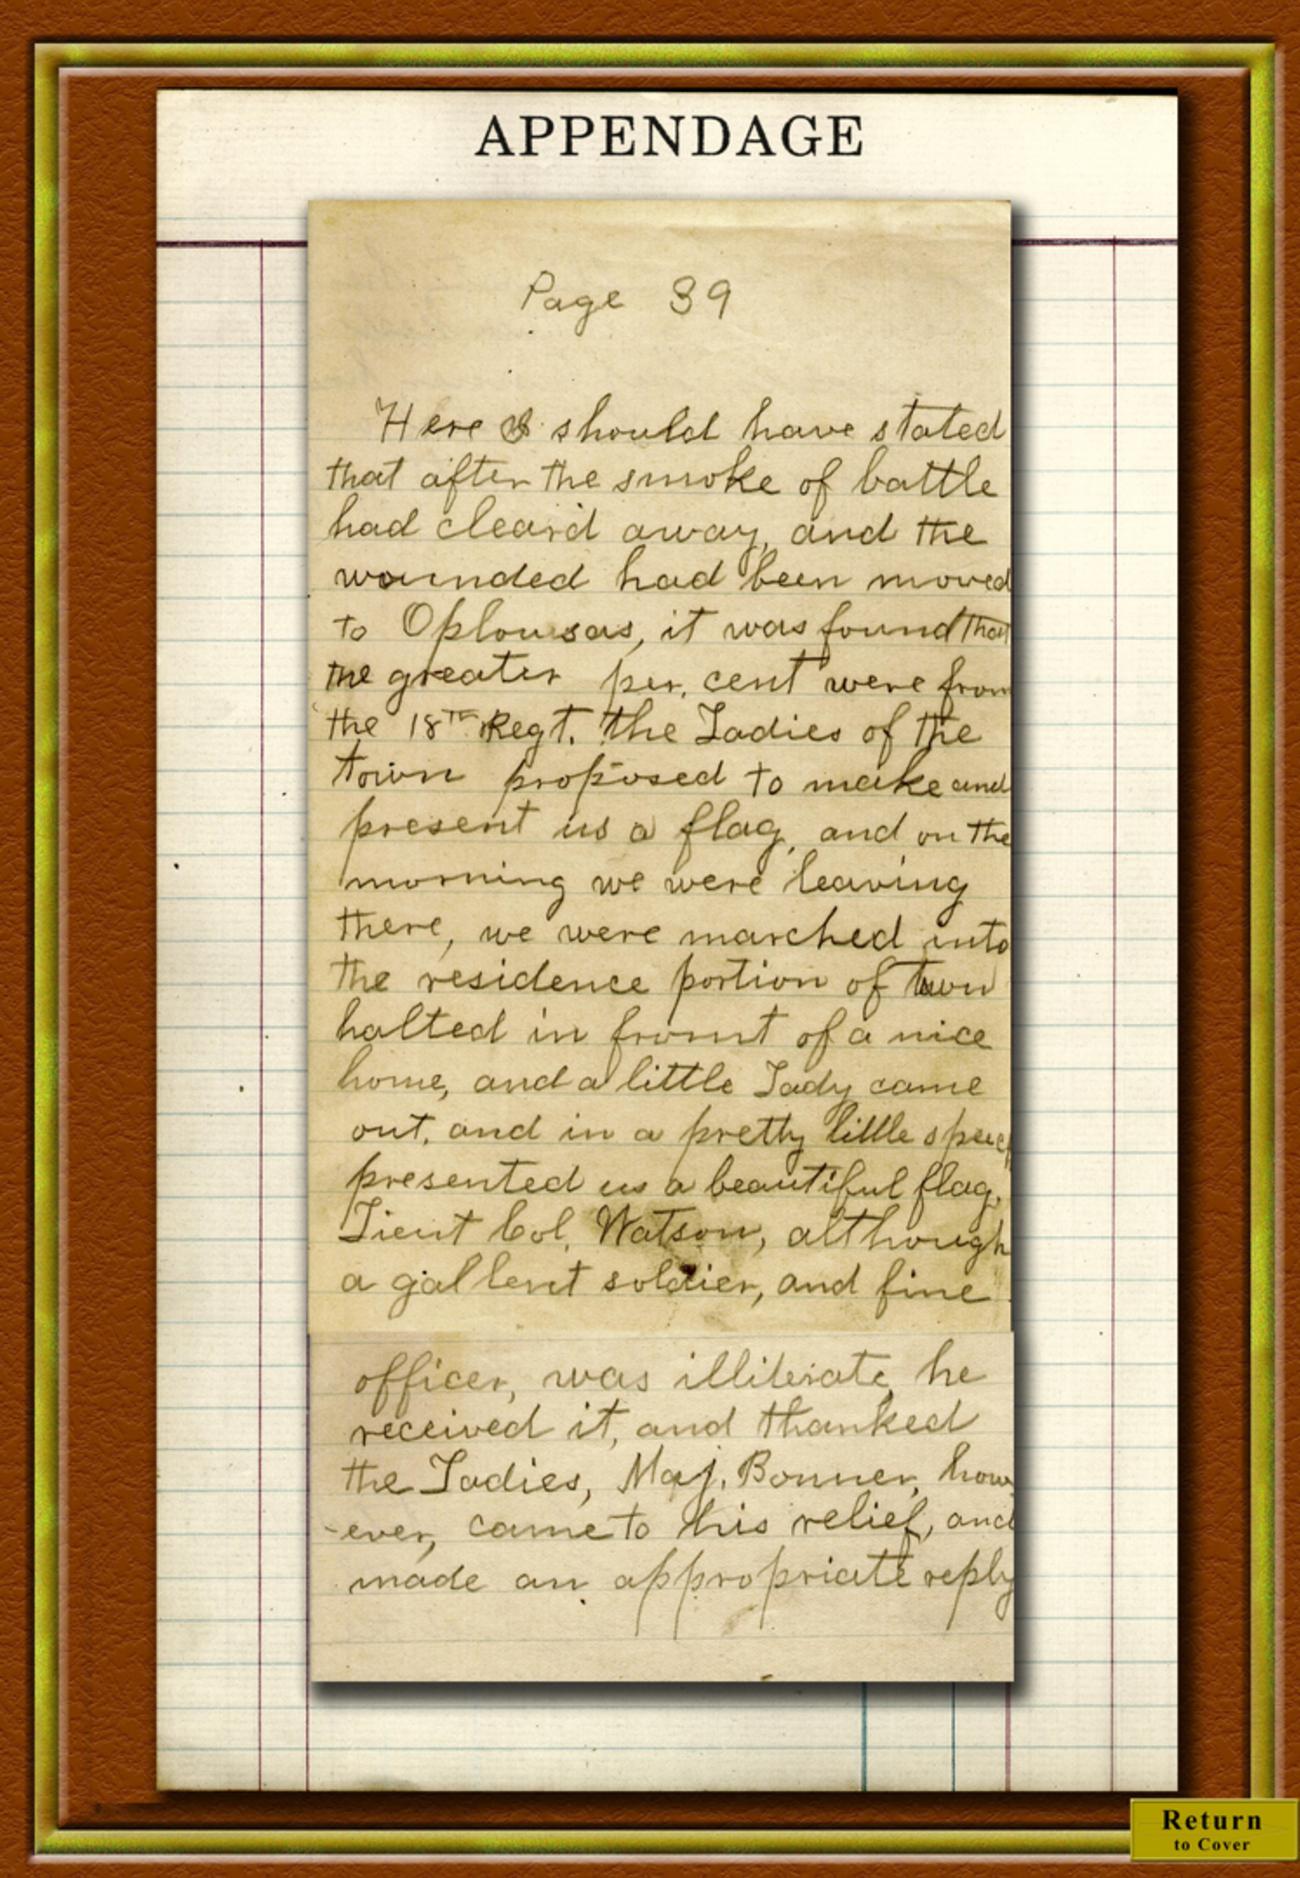 APPENDAGE
Page 39
Here I should have stated
that after the smoke of battle
had cleard away, and the
wounded had been moved
to Oplousas, it was found that
the greater per. cent were from
the 18TH Regt. the Ladies of the
town proposed to make and
present us a flag, and on the
morning we were leaving
there, we were marched into
the residence portion of town
halted in fromt of a nice
home, and a little Lady came
out, and in a pretty little speech
presented us a beautiful flag,
Lieut Col. Watson, although
a gallent soldier, and fine
officer, was illiterate, he
received it, and thanked
the Ladies, Maj. Bonner, how
-ever, came to this relief, and
made an appropriate reply
Return
to Cover